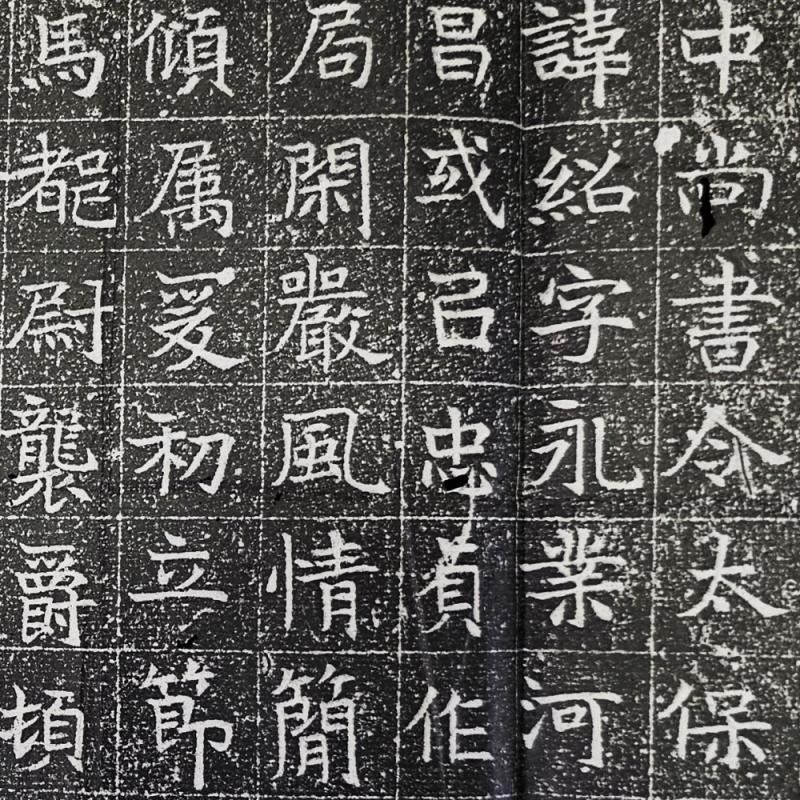 中尚書令太保
諱紹字永業河
昌或以忠貞作
局閑嚴風情簡
傾属爰初立節
馬都尉襲爵頓